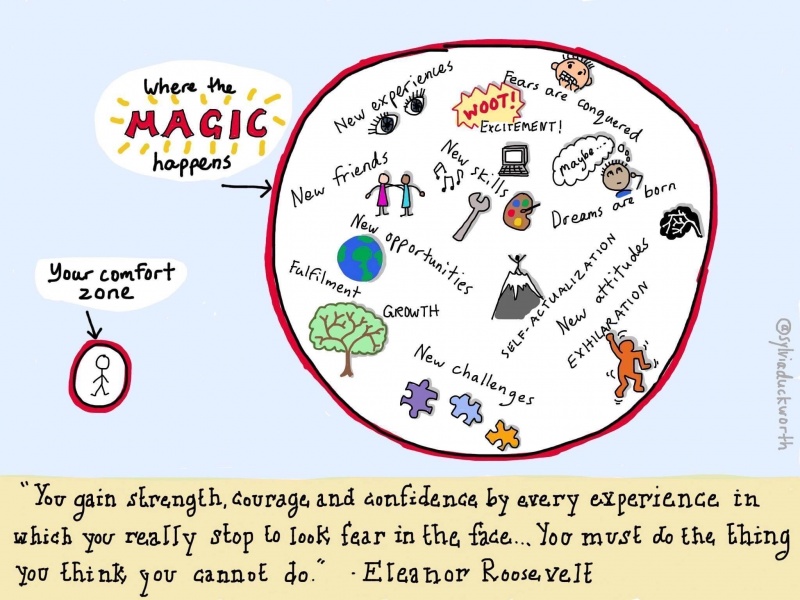 Where the
MAGIC
happens
Your comfort
zone
New experiences
Fears are conquered
WOOT!
EXCITEMENT!
New friends
New skills
maybe...
Dreams are born
New opportunities
Fulfilment
GROWTH
SELF-ACTUALIZATION
New attitudes
EXHILARATION
New challenges
@sylviaduckworth
"You gain strength, courage and confidence by every experience in
which you really stop to look fear in the face... You must do the thing
you think you cannot do." - Eleanor Roosevelt